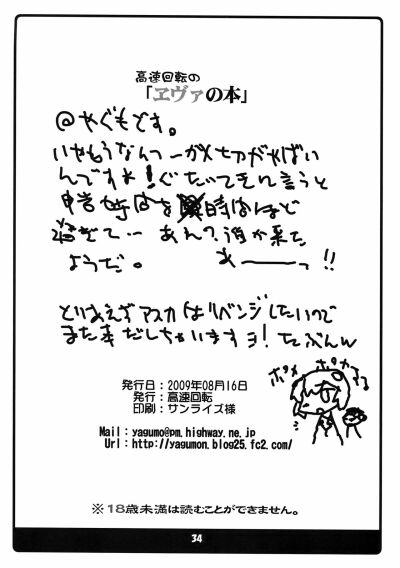 高速回転の
「ヱヴァの本」
@やぐもです。
いやもうなんつーか〆切がやばい
んですよ!ぐたいてきに言うと
申告時間を時間ほど
過ぎて… あれ?誰か来た
ようだ。 あーーっ!!
とりあえずアスカはリベンジしたいので
また本だしちゃいますョ!たぶんw
ポカポカする
発行日:2009年08月16日
発行:高速回転
印刷:サンライズ様
Mail:yagumo@pm.highway.ne.jp
Url:http://yagumon.blog25.fc2.com/
※18歳未満は読むことができません。
34